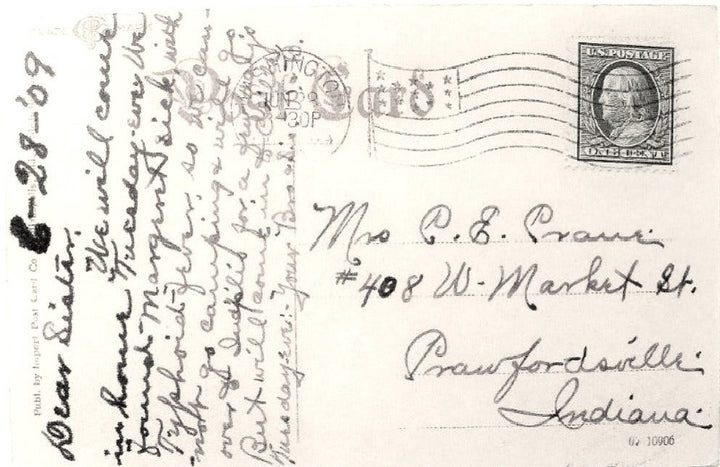 Post Card
JUN 28
30P
U.S. POSTAGE
ONE CENT
6-28-09
Dear Sister.
We will come
in home Tuesday eve we
found Margaret sick with
Typhoid-fever. so we can-
not go camping & will go
over to Indpls for a few days
But will come in
Tuesday eve: Your Bro.
Mrs P. E. Prance.
#408 W. Market St.
Crawfordsville.
Indiana.
Publ. by Import Post Card Co
10906